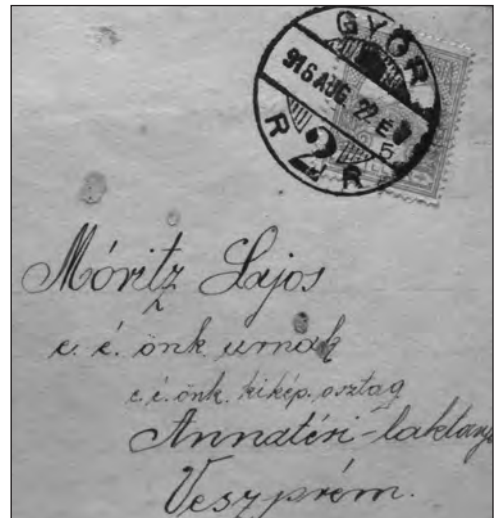 GYŐR
916 AUG. 22. É
5
R 2 R
Móritz Lajos
e. é. önk. urnak
e. é. önk. kikép. osztag
Annatéri-laktanya
Veszprém.